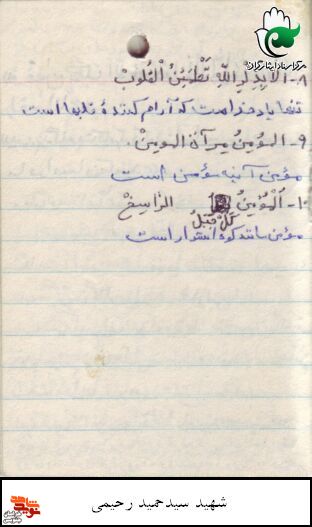 مرکز اسناد ایثارگران
۸- اَلا بِذِکرِ اللهِ تَطمَئِنُّ القُلُوبُ
تنها یاد خدا است که آرام کنندهٔ دلها است
۹- المؤمِنُ مِرآةُ المومِن
مؤمن آینه مؤمن است
۱۰- اَلْمُؤمِنُ الرّاسِخْ
کَالجَبَلِ
مؤمن مانند کوه استوار است
شهید سیدحمید رحیمی